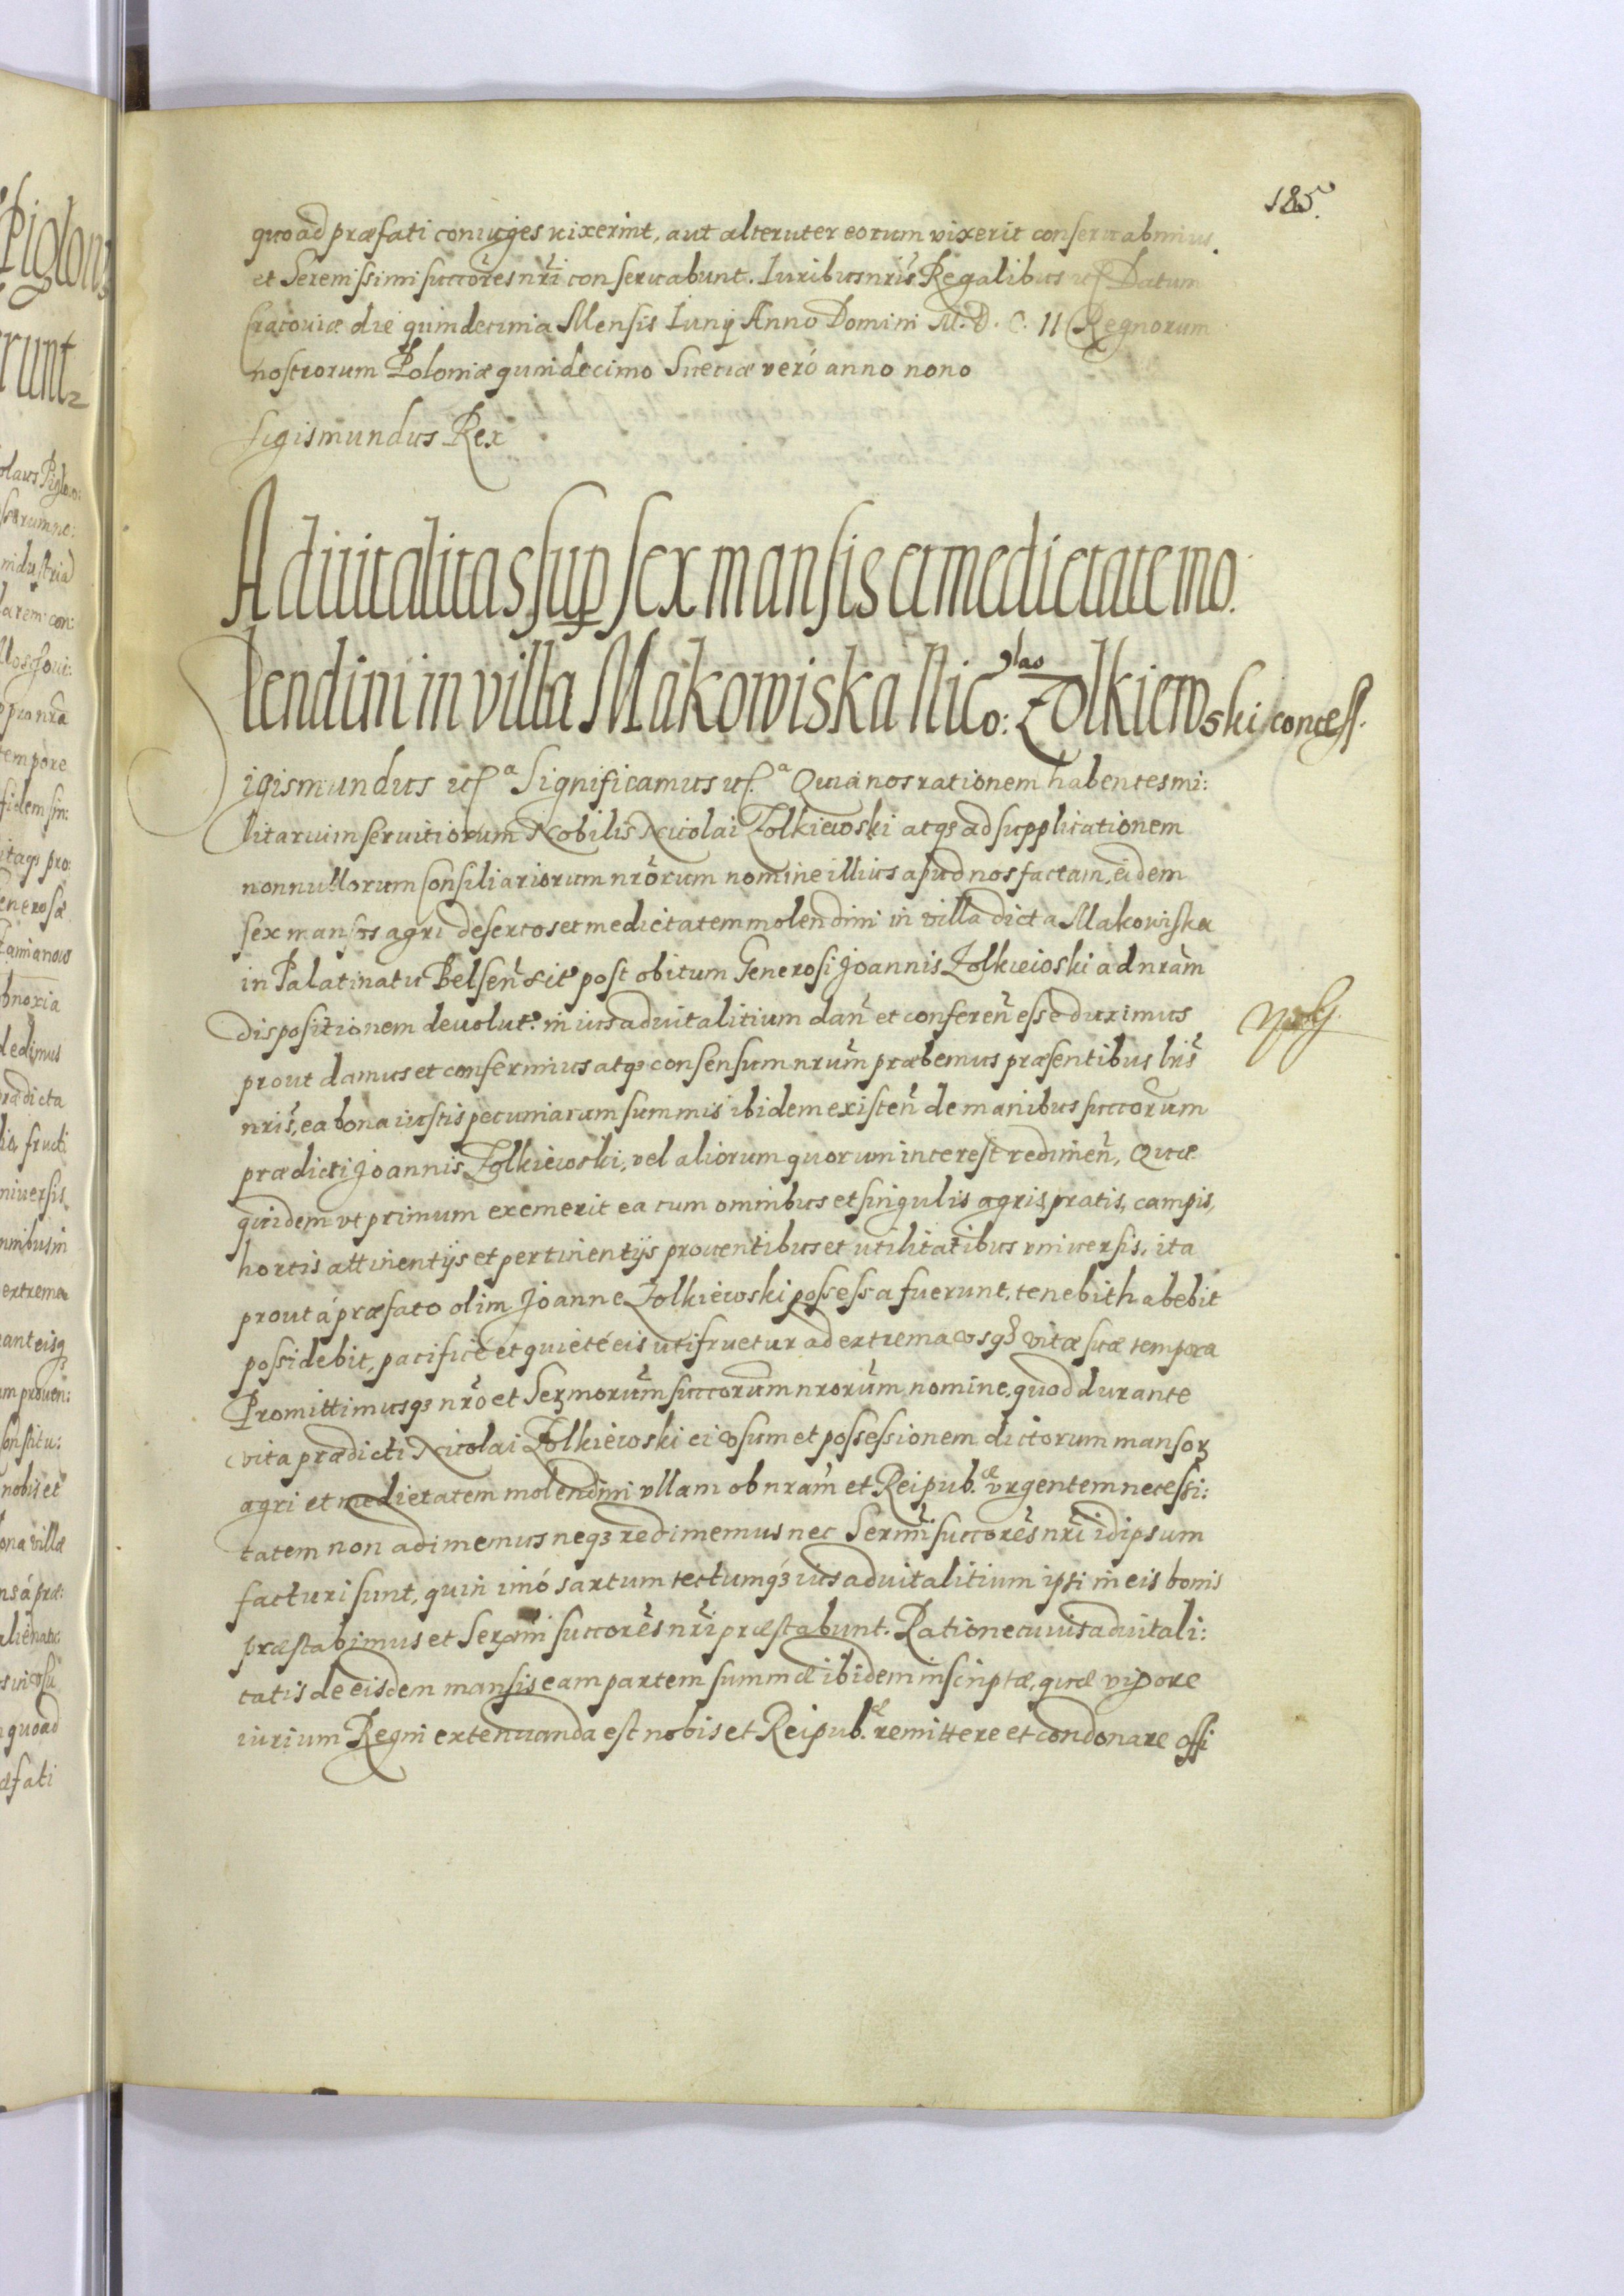 185.
quoad præfati coniuges vixerint, aut alteruter eorum vixerit conseruabimus
et Serenissimi succores nri conseruabunt. Iuribus nris Regalibus etc Datum
Cracouiæ die quindecima Mensis Iunij Anno Domini M.D.C.II Regnorum
nostrorum Poloniæ quindecimo Sueciæ veró anno nono
Sigismundus Rex
Aduitalitas sup sex mansis et medietate mo:
lendini in villa Makowiska Nico:lao Zolkiewski concess.
Sigismundus etc.a Significamus etc.a Quia nos rationem habentes mi:
litarium seruitiorum Nobilis Nicolai Zolkiewski atq3 ad supplicationem
nonnullorum Consiliariorum nrorum nomine illius apud nos factam, eidem
sex mansos agri desertos et medietatem molendini in villa dicta Makowiska
in Palatinatu Belsen sit. post obitum Generosi Joannis Zolkiewski ad nram
dispositionem deuolut. in ius aduitalitium dan et conferen esse duximus
prout damus et conferimus atq3 consensum nrum præbemus præsentibus lris
nris, ea bona iustis pecuniarum summis ibidem existen de manibus succorum
prædicti Joannis Zolkiewski, vel aliorum quorum interest redimen, Quæ
quidem vt primum exemerit ea cum omnibus et singulis agris, pratis, campis,
hortis attinentijs et pertinentijs prouentibus et utilitatibus vniuersis, ita
prout á præfato olim Joanne Zolkiewski possessa fuerunt, tenebit habebit
possidebit, pacificé et quieté eis utifruetur ad extrema usq3 vitæ suæ tempora
Promittimusq3 nro et Sermorum succorum nrorum nomine, quod durante
vita prædicti Nicolai Zolkiewski ei usum et possessionem dictorum mansor
agri et medietatem molendini vllam ob nram et Reipub.æ vrgentem necessi:
tatem non adimemus neq3 redimemus nec Sermi succores nri id ipsum
facturi sunt, quin imó sartum tectumq3 ius aduitalitium ipsi in eis bonis
præstabimus et Sermi succores nri præstabunt. Ratione cuius aduitali:
tatis de eisdem mansis eam partem summæ ibidem inscriptæ, quæ vigore
iurium Regni extenuanda est nobis et Reipub.æ remittere et condonare offi